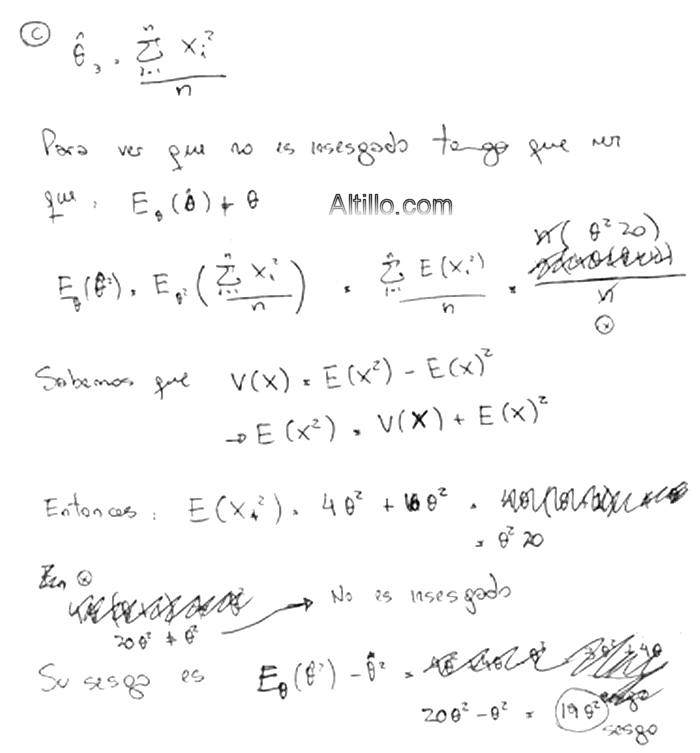 (c) θ̂₃ = Σᵢ₌₁ⁿ Xᵢ² / n
Para ver que no es insesgado tengo que ver
que: E_θ(θ̂) ≠ θ
Altillo.com
E_θ(θ̂²) = E_θ²(Σᵢ₌₁ⁿ Xᵢ² / n) = Σᵢ₌₁ⁿ E(Xᵢ²) / n = n(θ² 20) / n
⊗
Sabemos que V(X) = E(X²) - E(X)²
→ E(X²) = V(X) + E(X)²
Entonces: E(Xᵢ²) = 4θ² + 16θ² =
= θ² 20
En ⊗
20θ² ≠ θ² → No es insesgado
Su sesgo es E_θ(θ̂²) - θ² =
20θ² - θ² = 19θ² sesgo